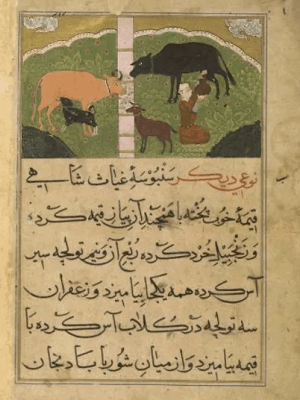 نوعی دیکر سنبوسهٔ غیاث شاهی
قیمه خوب پخته با همچند آن پیاز قیمه کرده
و زنجبیل خرد کرده ربع آن و نیم تولچه سیر
آس کرده همه یکجا بیامیزد و زعفران
سه تولچه در کلاب آس کرده با
قیمه بیامیزد و از میان شوربا بادنجان